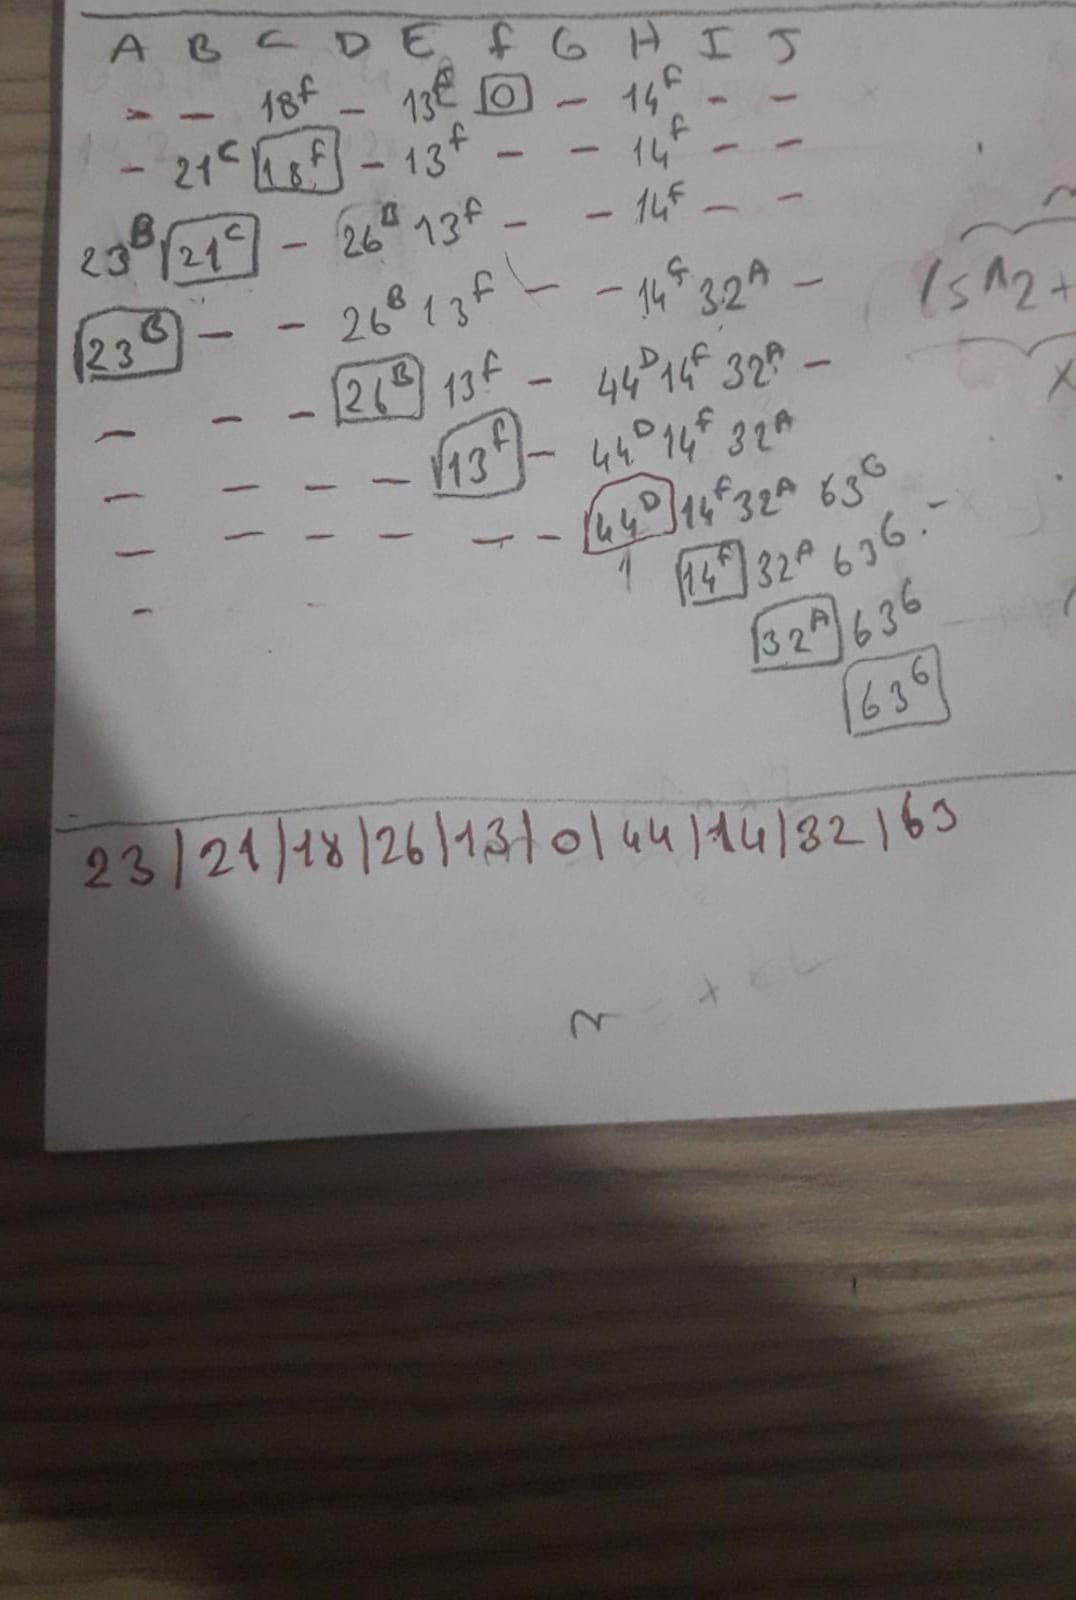 A B C D E f G H I J
- - 18^f - 13^E 0 - 14^F - -
- 21^C 18^f - 13^f - - 14^f - -
23^B 21^C - 26^B 13^f - - 14^F - -
23^B - - 26^B 13^F - - 14^G 32^A -
- - - 26^B 13^f - 44^D 14^F 32^A -
- - - - 13^f - 44^D 14^f 32^A
- - - - - - 44^D 14^F 32^A 63^G
- 1 14^F 32^A 63^G -
32^A 63^G
63^G
23 | 21 | 18 | 26 | 13 | 0 | 44 | 14 | 32 | 63